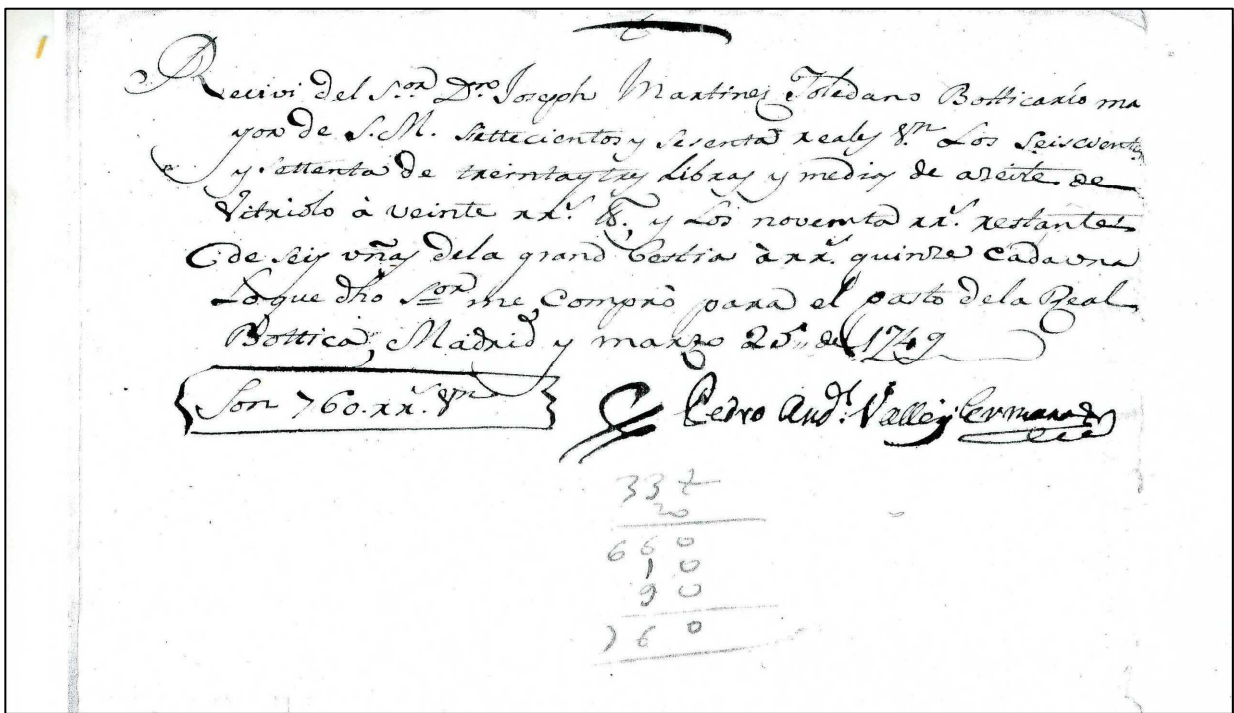 Recivi del S.or D.n Joseph Martinez Toledano Botticario ma
yor de S.M. Settecientos y Sesenta reales V.n Los Seiscientos
y settenta de treinta y tres Libras y media de azeite de
Vitriolo à veinte rr.s V., y Los noventa rr.s restantes
de seis uñas dela grand bestia à rr.s quinze cada una
Lo que dho S.or me Comprò para el gasto dela Real
Bottica, Madrid y marzo 25 de 1749
Son 760 rr.s V.n
Pedro And.s Valle y Hermano
33 ½
20
660
10
90
760